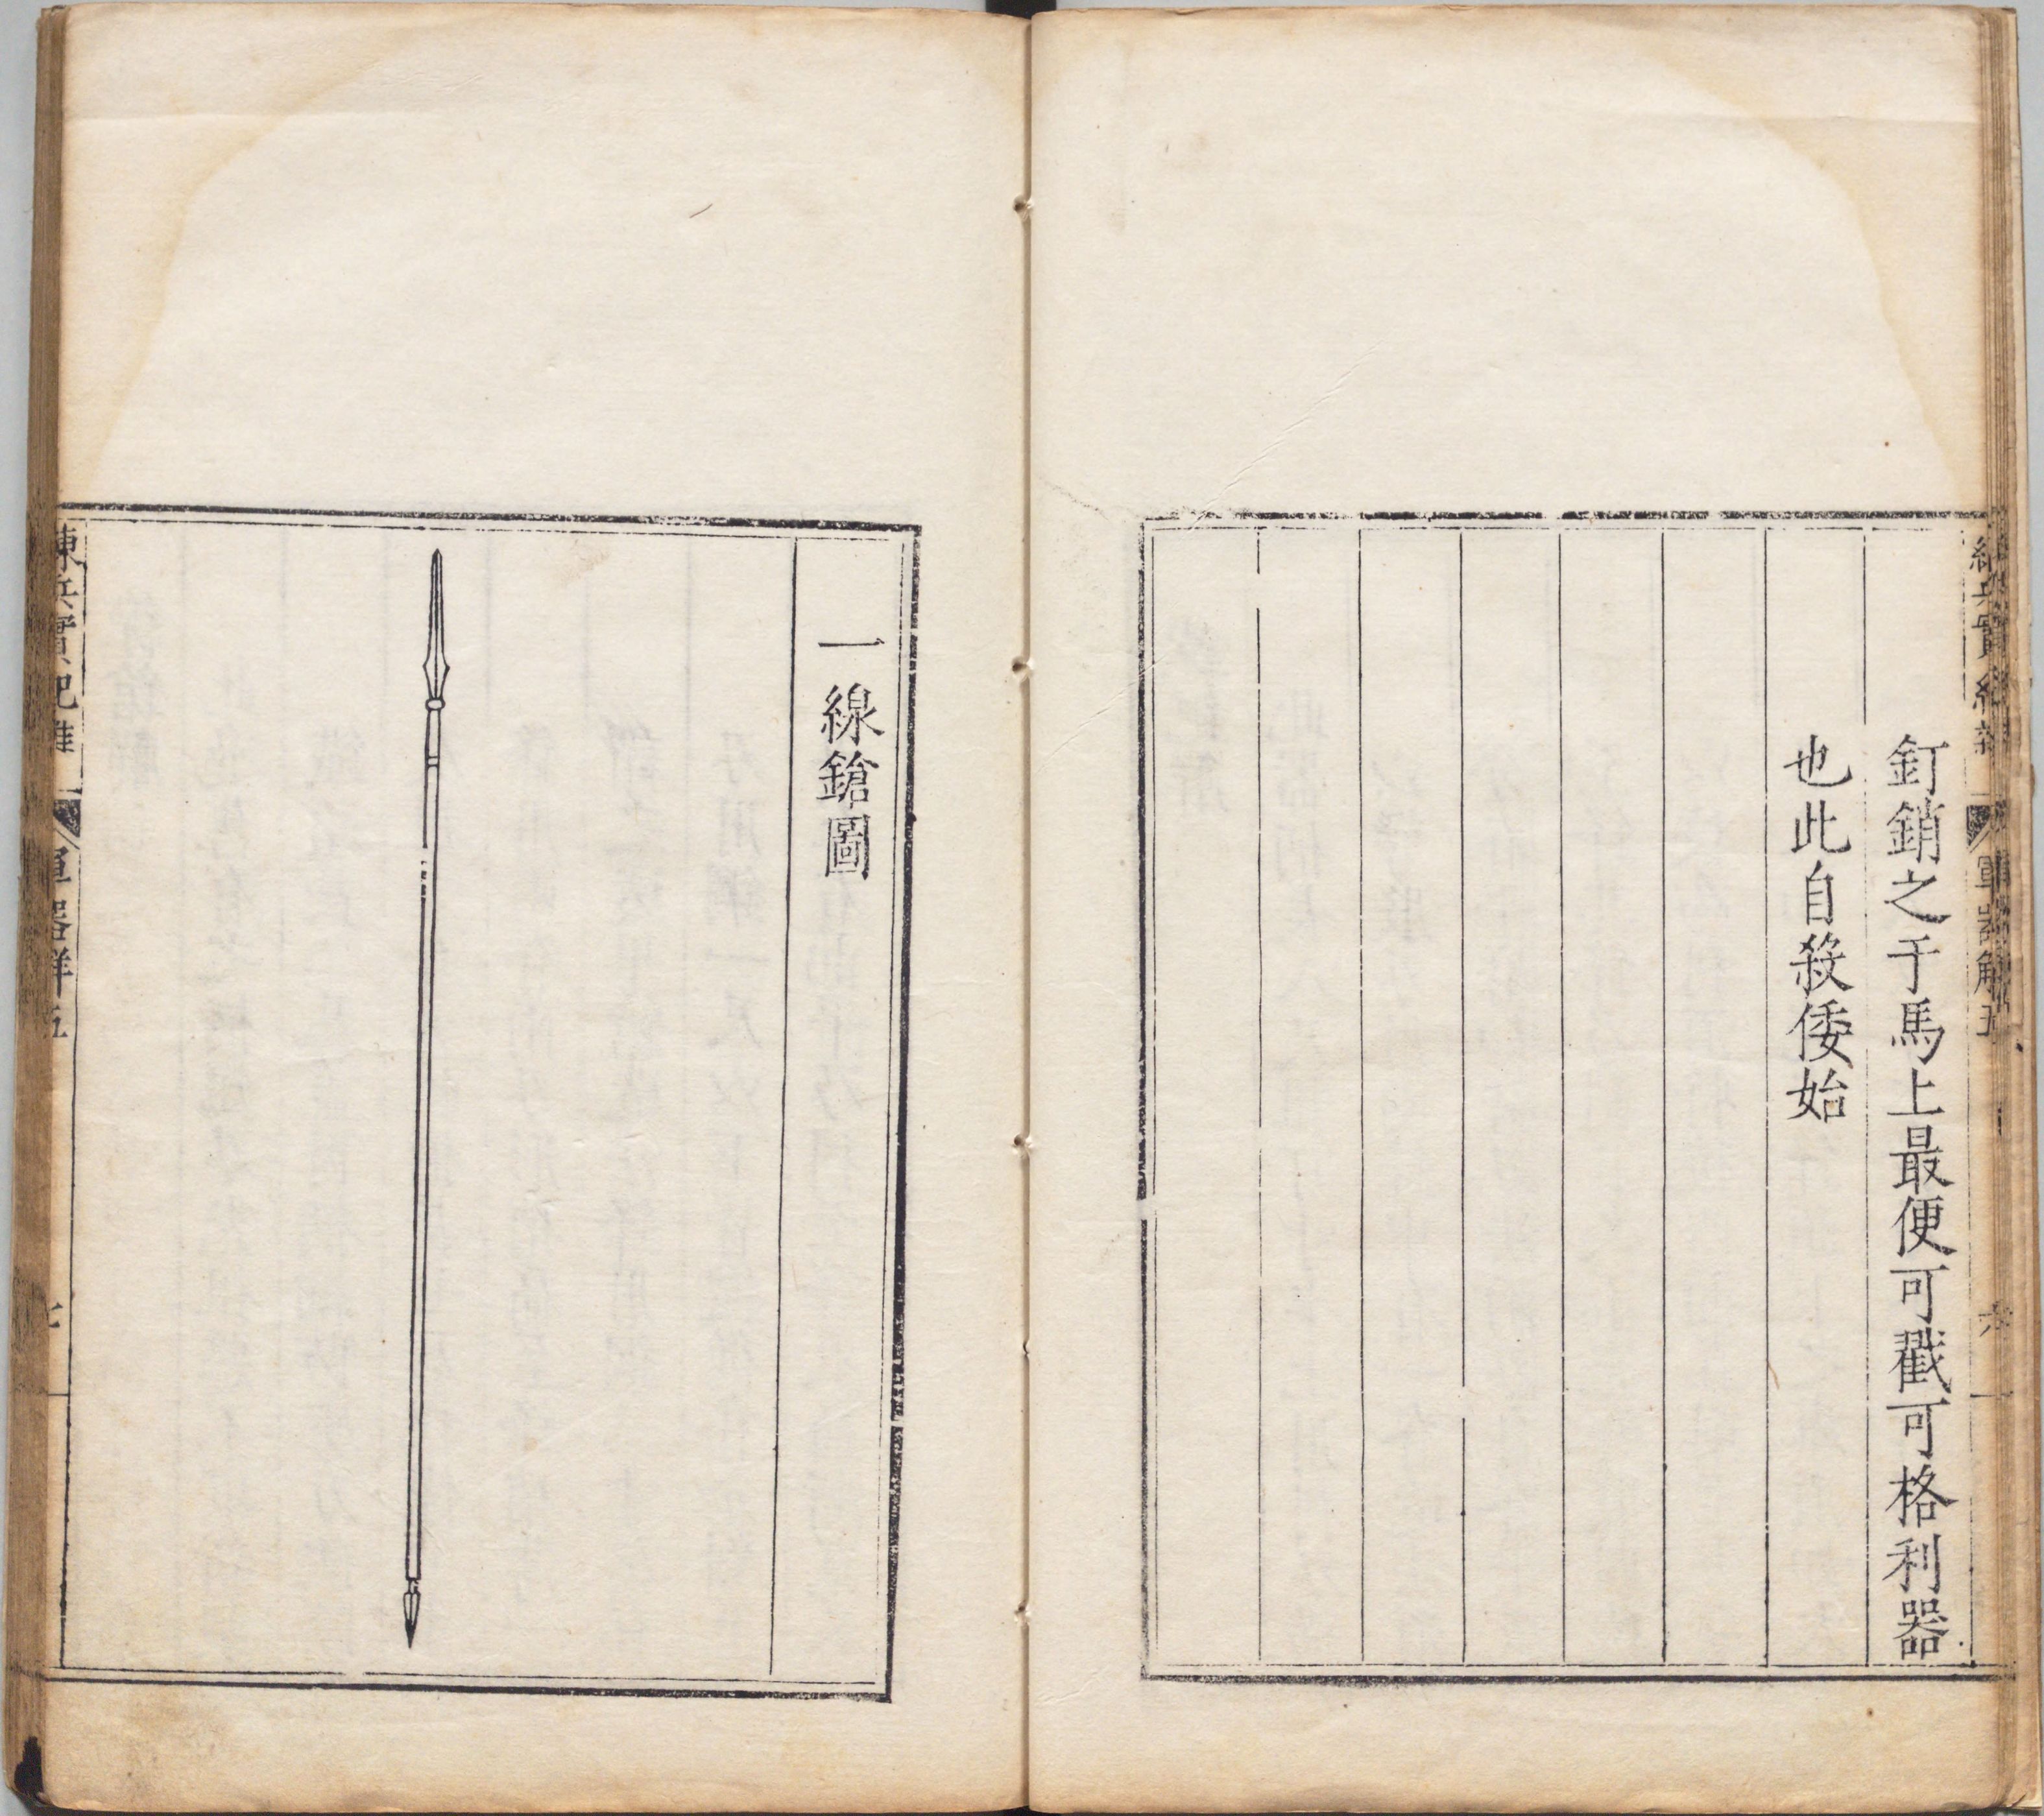 釘銷之于馬上最便可戳可格利器
也此自殺倭始
練兵實紀雜
軍器解五
六
一線鎗圖
練兵實紀雜
軍器解五
七